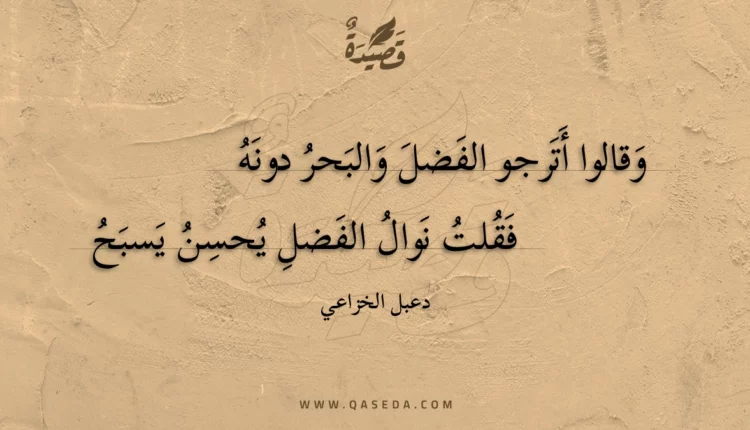 قَصِيدَةٌ
وَقالوا أَتَرجو الفَضلَ وَالبَحرُ دونَهُ
فَقُلتُ نَوالُ الفَضلِ يُحسِنُ يَسبَحُ
دعبل الخزاعي
WWW.QASEDA.COM